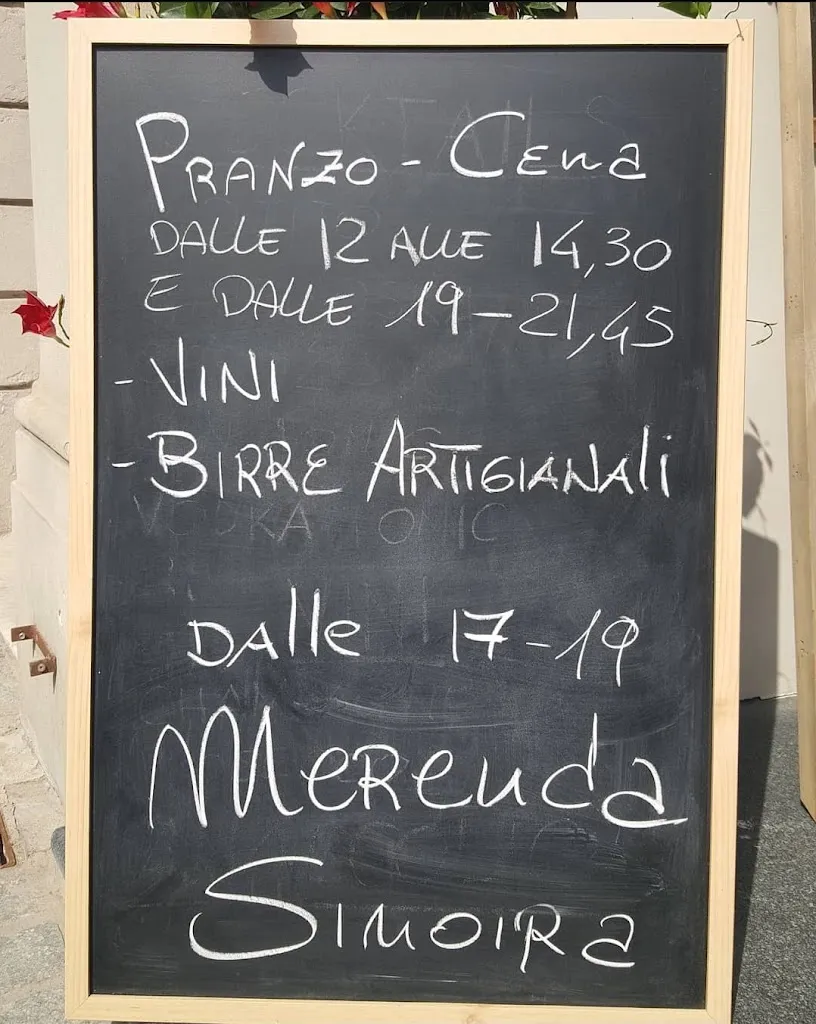 PRANZO - CENA
DALLE 12 ALLE 14,30
E DALLE 19-21,45
- VINI
- BIRRE ARTIGIANALI
DALLE 17-19
MERENDA
SIMOIRA